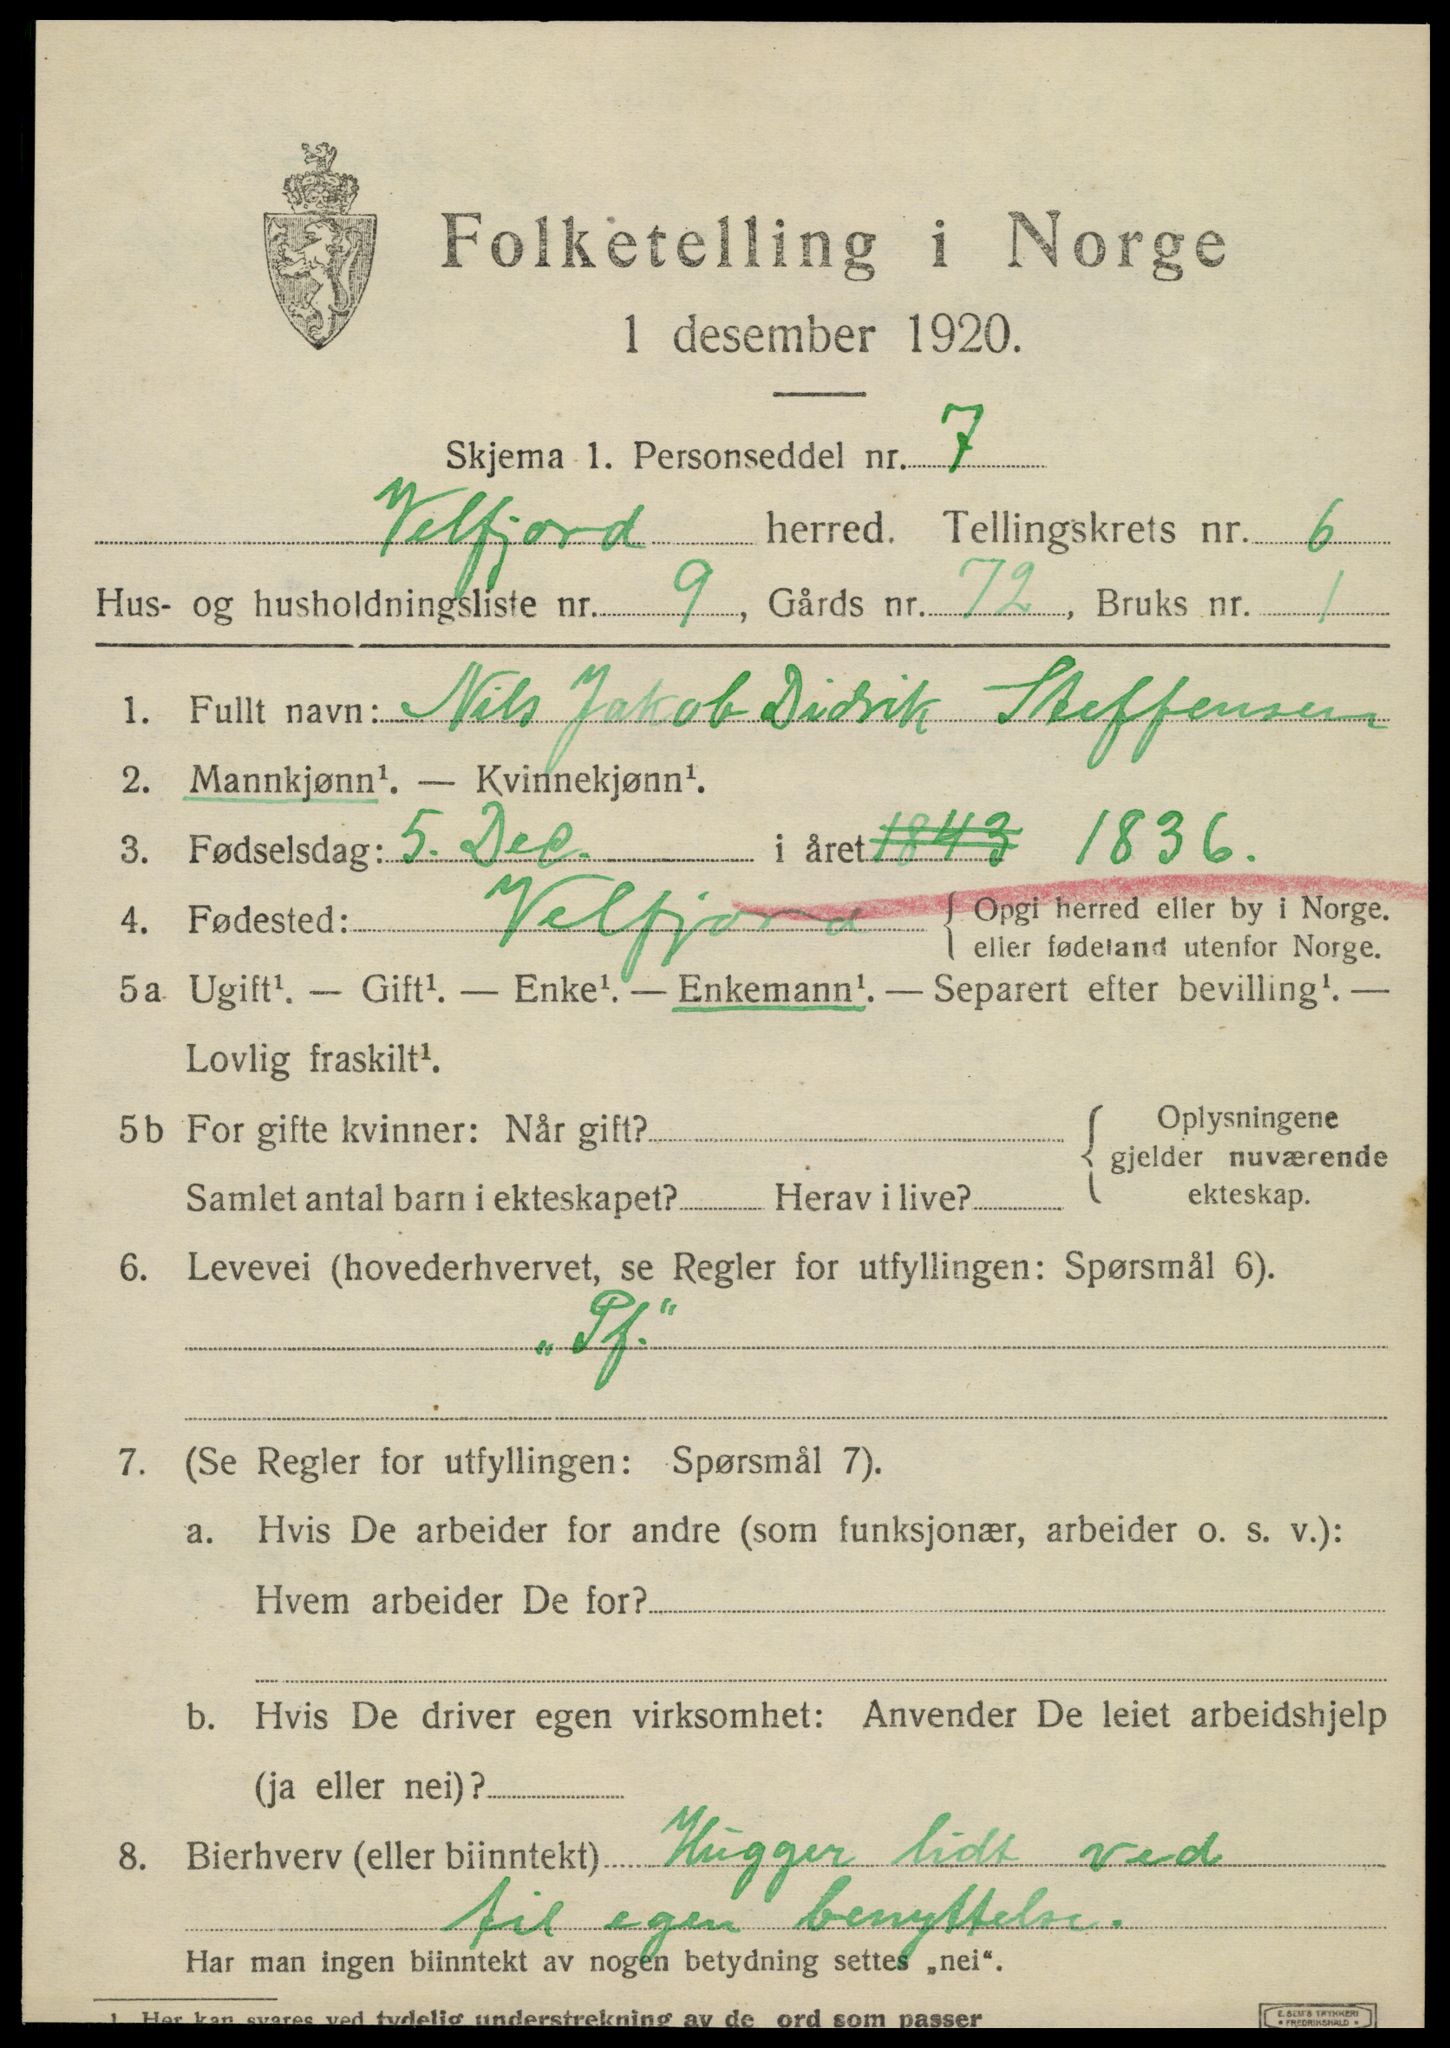 Folketelling i Norge
1 desember 1920.
Skjema 1. Personseddel nr. 7
Velfjord herred. Tellingskrets nr. 6
Hus- og husholdningsliste nr. 9, Gårds nr. 72, Bruks nr. 1
1. Fullt navn: Nils Jakob Didrik Steffensen
2. Mannkjønn¹. — Kvinnekjønn¹.
3. Fødselsdag: 5. Dec. i året 1843 1836.
4. Fødested: Velfjord { Opgi herred eller by i Norge.
eller fødeland utenfor Norge.
5a Ugift¹. — Gift¹. — Enke¹. — Enkemann¹. — Separert efter bevilling¹. —
Lovlig fraskilt¹.
5b For gifte kvinner: Når gift?
Samlet antal barn i ekteskapet? Herav i live?
Oplysningene
gjelder nuværende
ekteskap.
6. Levevei (hovederhvervet, se Regler for utfyllingen: Spørsmål 6).
„Pf.“
7. (Se Regler for utfyllingen: Spørsmål 7).
a. Hvis De arbeider for andre (som funksjonær, arbeider o. s. v.):
Hvem arbeider De for?
b. Hvis De driver egen virksomhet: Anvender De leiet arbeidshjelp
(ja eller nei)?
8. Bierhverv (eller biinntekt) Hugger lidt ved
til egen benyttelse.
Har man ingen biinntekt av nogen betydning settes „nei“.
1. Her kan svares ved tydelig understrekning av de ord som passer
E. SEM'S TRYKKERI
FREDRIKSHALD